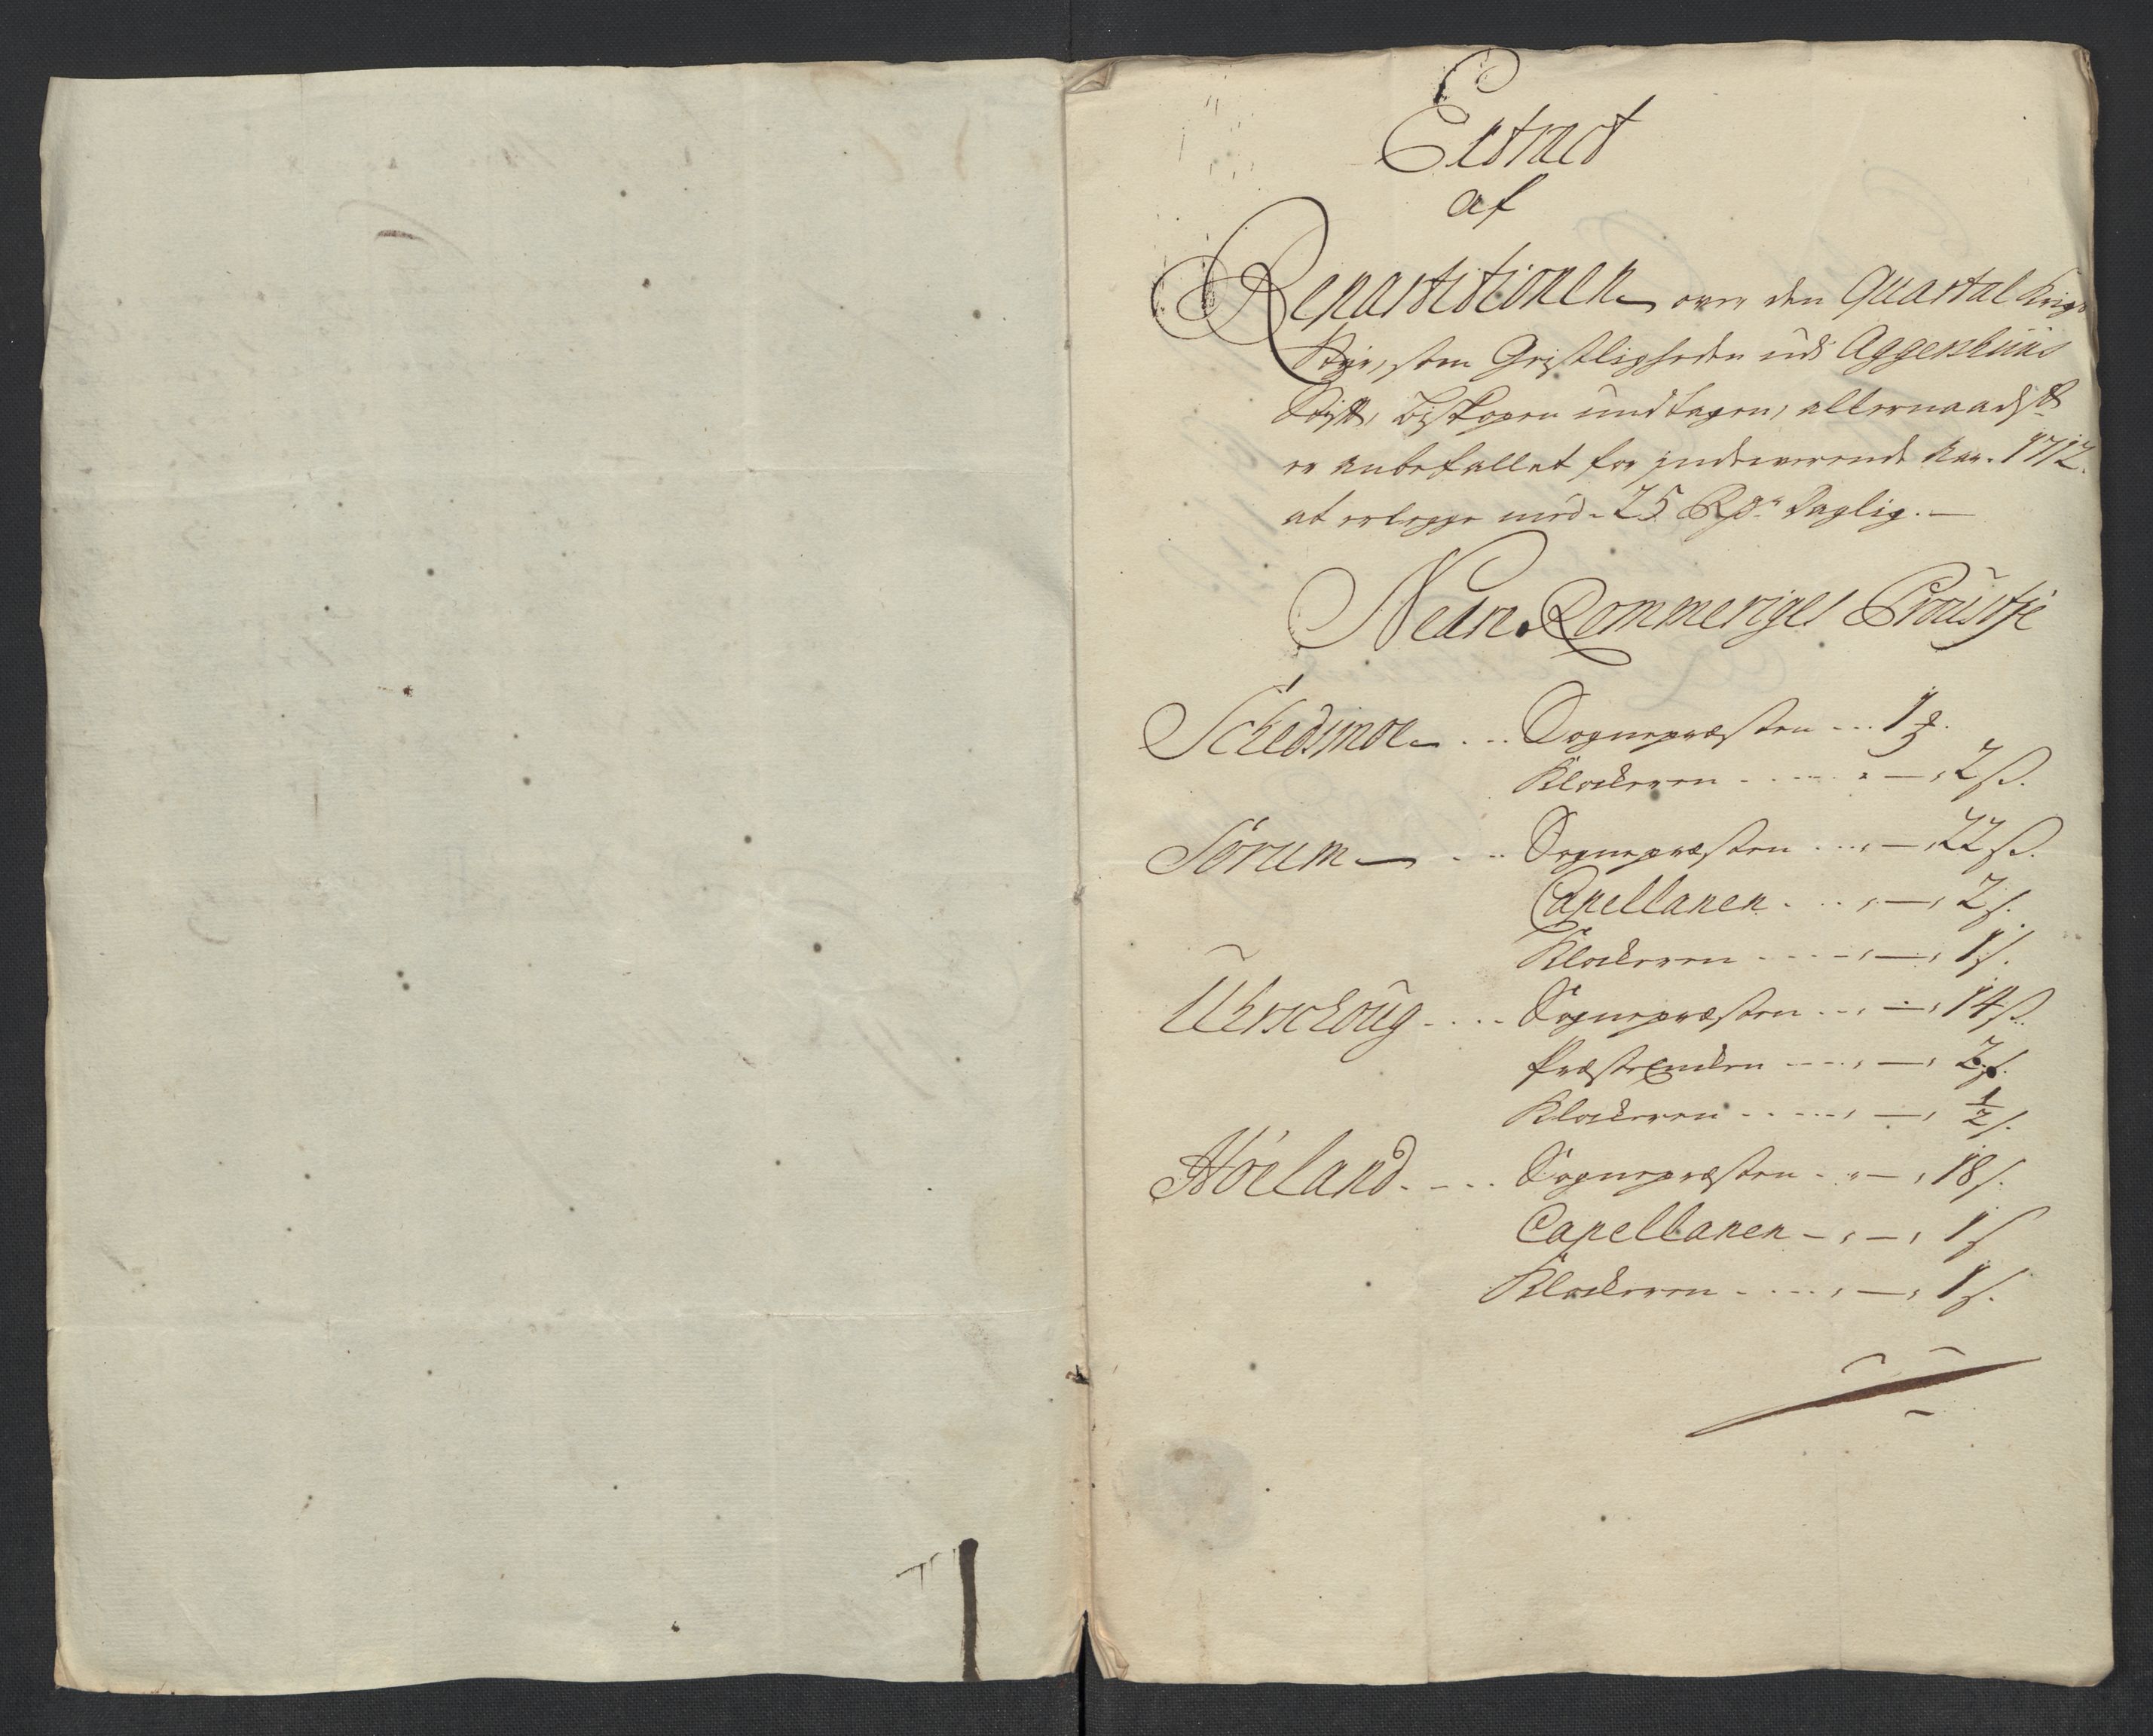 Extract
af
Repartitionen over den Quartal Krigs
Styr, som Geistligheden udi Aggershuus
Stift, Biskopen undtagen, allernaadigst
er anbefallet for indeværende Aar. 1712.
at erlegge med 25 Rdr Daglig.
Nedre Rommeriges Proustje
Schedsmoe .... Sognepræsten ... 1
Klockeren ..... — 2 ß.
Sørum — .. Sognepræsten ... — 22 ß.
Capellanen ... — 2 ß.
Klockeren .... — 1 ß.
Uhrschoug .... Sognepræsten ... — 14 ß.
Præsteenken .... — 2 ß.
Klockeren ..... — 1/2 ß.
Høeland .... Sognepræsten .. — 18 ß.
Capellanen — 1 ß
Klockeren .... — 1 ß.